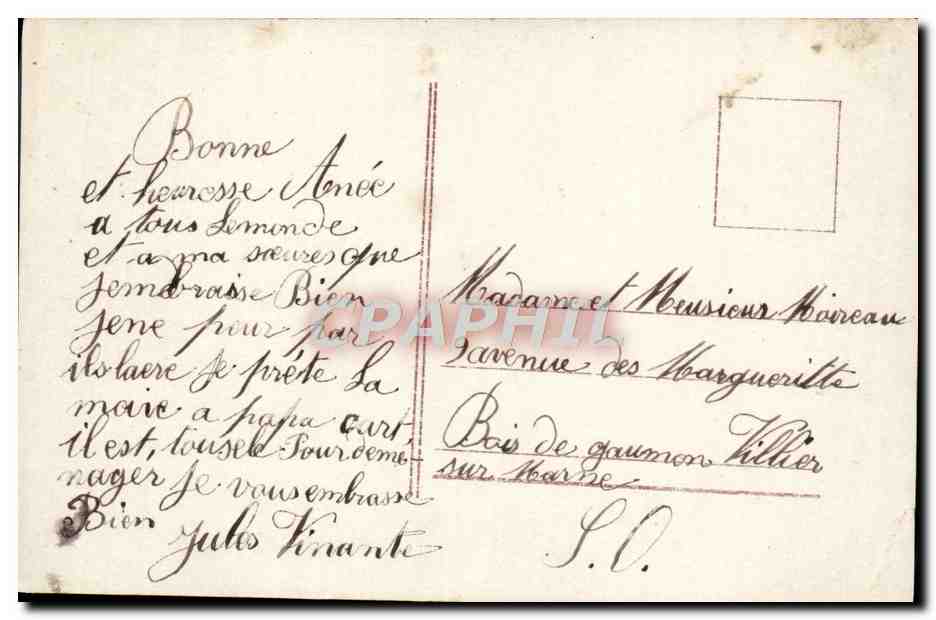 Bonne
et heurosse Anée
a tous Lemonde
et a ma sœures que
Jembrasse Bien
Jene peur par
ils laere Je préte La
maie a papa cart
il est, tousele Jour demé-
nager Je vous embrasse
Bien
Jules Vinante
Madame et Meusieur Moireau
2 avenue des Margueritte
Bois de gaumon Villier
sur Marne
S. O.
CPAPHIL